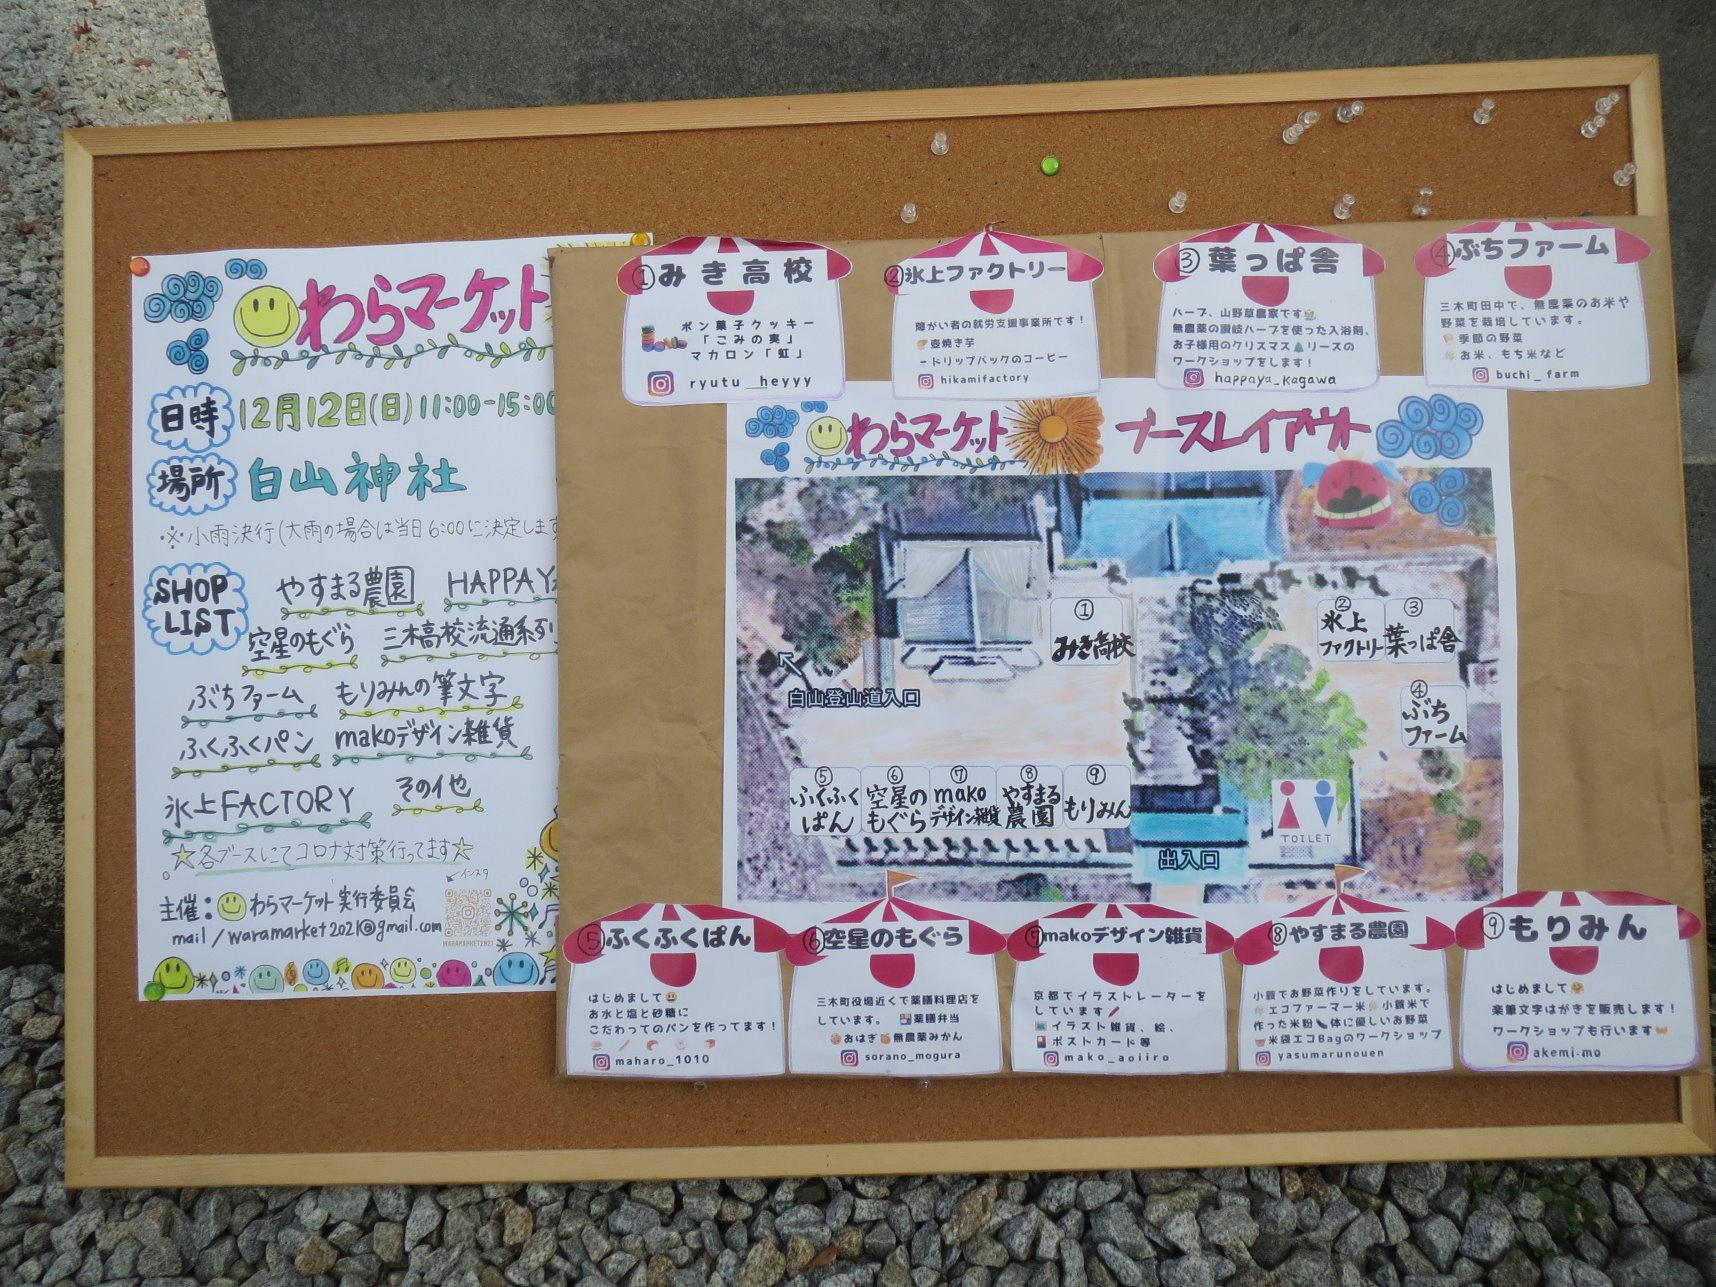 わらマーケット
日時 12月12日(日) 11:00-15:00
場所 白山神社
※小雨決行(大雨の場合は当日6:00に決定します
SHOP LIST
やすまる農園 HAPPAYA
空星のもぐら 三木高校流通系列
ぶちファーム もりみんの筆文字
ふくふくパン makoデザイン雑貨
氷上FACTORY その他
☆各ブースにてコロナ対策行ってます☆
インスタ
主催: わらマーケット実行委員会
mail/waramarket2021@gmail.com
WARAMARKET2021
①みき高校
ポン菓子クッキー
「こみの実」
マカロン「虹」
ryutu_heyyy
②氷上ファクトリー
障がい者の就労支援事業所です！
壺焼き芋
ードリップバックのコーヒー
hikamifactory
③葉っぱ舎
ハーブ、山野草農家です
無農薬の讃岐ハーブを使った入浴剤、
お子様用のクリスマス🎄リースの
ワークショップをします！
happaya_kagawa
④ぶちファーム
三木町田中で、無農薬のお米や
野菜を栽培しています。
季節の野菜
お米、もち米など
buchi_farm
わらマーケット ブースレイアウト
①
みき高校
②
氷上
ファクトリー
③
葉っぱ舎
④
ぶち
ファーム
白山登山道入口
⑤
ふくふく
ぱん
⑥
空星の
もぐら
⑦
mako
デザイン雑貨
⑧
やすまる
農園
⑨
もりみん
TOILET
出入口
⑤ふくふくぱん
はじめまして😃
お水と塩と砂糖に
こだわってのパンを作ってます！
maharo_1010
⑥空星のもぐら
三木町役場近くで薬膳料理店を
しています。 🍱薬膳弁当
🍘おはぎ🍊無農薬みかん
sorano_mogura
⑦makoデザイン雑貨
京都でイラストレーターを
しています
イラスト雑貨、絵、
ポストカード等
mako_aoiiro
⑧やすまる農園
小蓑でお野菜作りをしています。
エコファーマー米🌾小蓑米で
作った米粉🍆体に優しいお野菜
米袋エコBagのワークショップ
yasumarunouen
⑨もりみん
はじめまして
楽筆文字はがきを販売します！
ワークショップも行います
akemi.mo